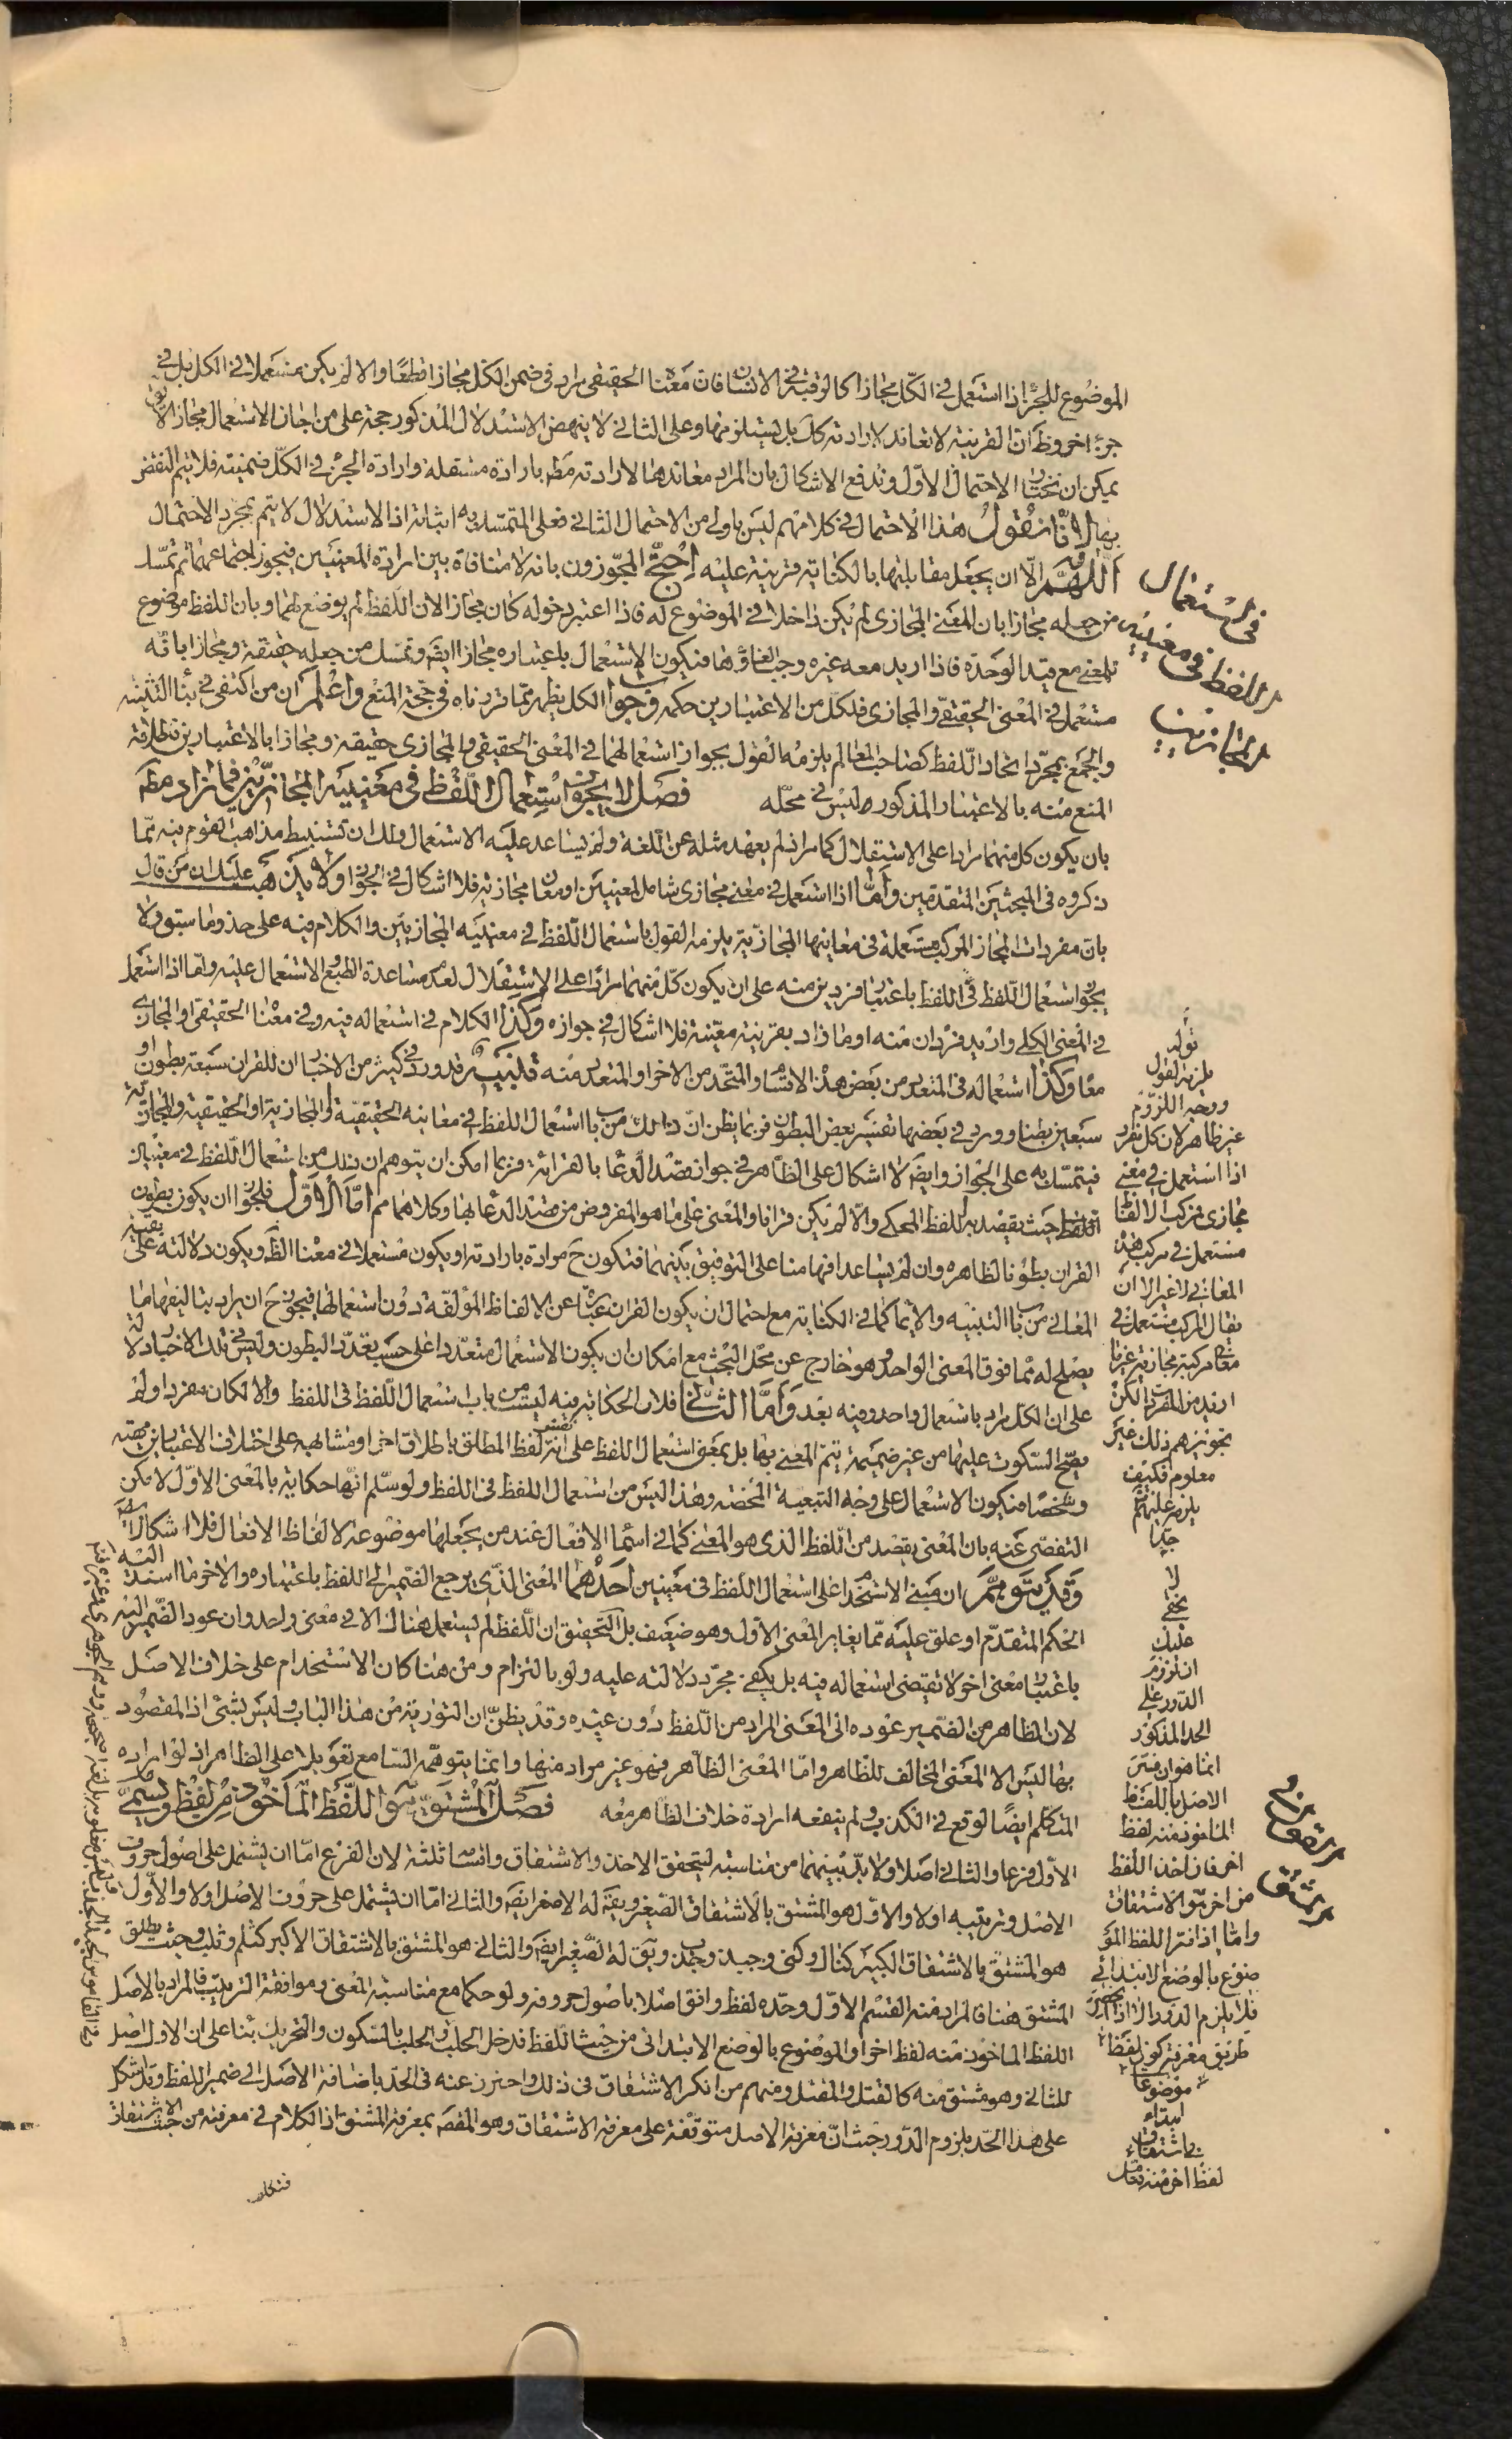 الموضوع للجزء اذا استعمل في الكل مجازا كالرقبة في الانسان فان معناه الحقيقى مراد فى ضمن الكل مجازا قطعا والا لم يكن مستعملا في الكل بل في
جزء اخر وظ ان القرينة لا تعاند لارادته كل بل يستلزمها وعلى الثاني لا ينهض الاستدلال المذكور حجة على من اجاز الاستعمال مجازا لانا نقول
يمكن ان نختار الاحتمال الاول وندفع الاشكال بان المراد معاندها لارادته مط بارادة مستقلة وارادة الجزء في الكل ضمنيته فلا يتم النقض
بها لانا نقول هذا الاحتمال في كلامهم ليس باولى من الاحتمال الثاني فعلى المتمسك به اثباته اذ الاستدلال لا يتم بمجرد الاحتمال
اللهم الا ان يجعل مقابلتها بالكناية قرينة عليه احتج المجوزون بانه لا منافاة بين ارادة المعنيين فيجوز اجتماعهما ثم تمسك
من جعله مجازا بان المعنى المجازى لم يكن داخلا في الموضوع له فاذا اعتبر دخوله كان مجازا لان اللفظ لم يوضع لهما وبان اللفظ موضوع
للمعنى مع قيد الوحدة فاذا اريد معه غيره وجب الغاؤها فيكون الاستعمال باعتباره مجازا ايضا وتمسك من جعله حقيقة ومجازا بانه
مستعمل في المعنى الحقيقى والمجازى فلكل من الاعتبارين حكمه وجواب الكل يظهر مما قررناه في حجة المنع واعلم ان من اكتفى في بناء التثنية
والجمع بمجرد اتحاد اللفظ كصاحب المعالم يلزمه القول بجواز استعمالهما في المعنى الحقيقى والمجازى حقيقة ومجازا بالاعتبارين فاطلاقه
المنع منه بالاعتبار المذكور ليس في محله فصل لا يجوز استعمال اللفظ في معنييه المجازيين فما زاد مط
بان يكون كل منهما مرادا على الاستقلال كما مر اذ لم يعهد مثله عن اللغة ولم يساعد عليه الاستعمال ولك ان تستنبط مذاهب القوم فيه مما
ذكروه في المبحثين المتقدمين واما اذا استعمل في معنى مجازى شامل لمعنيين او معان مجازية فلا اشكال في الجواز ولا يذهب عليك ان من قال
بان مفردات المجاز المركب مستعملة في معانيها المجازية يلزمه القول باستعمال اللفظ في معنييه المجازيين والكلام فيه على حذو ما سبق ولا
يجوز استعمال اللفظ في اللفظ باعتبار فردين منه على ان يكون كل منهما مرادا على الاستقلال لعدم مساعدة الطبع والاستعمال عليه واما اذا استعمل
في المعنى الكلى واريد فردان منه او ما زاد بقرينة معينة فلا اشكال في جوازه وكذا الكلام في استعماله فيه وفي معناه الحقيقى او المجازى
معا وكذا استعماله في المتعدد من بعض هذه الاقسام والمتحد من الاخر او المتعدد منه تنبيه قد ورد في كثير من الاخبار ان للقران سبعة بطون او
سبعين بطنا وورد في بعضها تفسير بعض البطون فربما يظن ان ذلك من باب استعمال اللفظ في معانيه الحقيقية او المجازية او الحقيقية والمجازية
فيتمسك به على الجواز وايضا لا اشكال على الظاهر في جواز قصد الدعاء بالقرائة فربما امكن ان يتوهم ان ذلك من استعمال اللفظ في معنيين
اللفظ حيث يقصد به اللفظ المحكى والا لم يكن قرانا والمعنى على ما هو المفروض من قصد الدعاء بها وكلاهما مم اما الاول فلجواز ان يكون بطون
القران بطونا لظاهره وان لم يساعد افهامنا على التوفيق بينهما فتكون ح مرادة بارادته او يكون مستعملا في معناه الظ ويكون دلالته على بقية
المعاني من باب التنبيه والايماء كما في الكناية مع احتمال ان يكون القران عبارة عن الالفاظ المؤلفة دون استعمالها فيجوز ح ان يراد بتاليفها ما
يصلح له مما فوق المعنى الواحد وهو خارج عن محل البحث مع امكان ان يكون الاستعمال متعددا على حسب تعدد البطون وليس في تلك الاخبار دلالة
على ان الكل مراد باستعمال واحد وفيه بعد واما الثاني فلان الحكاية فيه ليست من باب استعمال اللفظ في اللفظ والا لكان مفردا ولم
يصح السكوت عليها من غير ضميمة يتم المعنى بها بل بمعنى استعمال اللفظ على انه نفس لفظ المطلق باطلاق اخر او مشابهه على اختلاف الاعتبارين مهية
وشخصا فيكون الاستعمال على وجه التبعية المحضة وهذا ليس من استعمال اللفظ في اللفظ ولو سلم انها حكاية بالمعنى الاول لامكن
التفصى عنه بان المعنى يقصد من اللفظ الذى هو المعنى كما في اسماء الافعال عند من يجعلها موضوعة لالفاظ الافعال فلا اشكال
وقد يتوهم ان مبنى الاستخدام على استعمال اللفظ في معنيين احدهما المعنى الذى يرجع الضمير الى اللفظ باعتباره والاخر ما اسند اليه
الحكم المتقدم او علق عليه مما يغاير المعنى الاول وهو ضعيف بل التحقيق ان اللفظ لم يستعمل هناك الا في معنى واحد وان عود الضمير اليه
باعتبار معنى اخر لا تقتضى استعماله فيه بل يكفى مجرد دلالته عليه ولو بالتزام ومن هنا كان الاستخدام على خلاف الاصل
لان الظاهر من الضمير عوده الى المعنى المراد من اللفظ دون غيره وقد يظن ان التورية من هذا الباب وليس بشئ اذ المقصود
بها ليس الا المعنى المخالف للظاهر واما المعنى الظاهر فهو غير مراد منها وانما يتوهمه السامع تعويلا على الظاهر اذ لو اراده
المتكلم ايضا لوقع في الكذب ولم ينفعه ارادة خلاف الظاهر معه فصل المشتق هو اللفظ الماخوذ من لفظ ويسمى
الاول فرعا والثاني اصلا ولا بد بينهما من مناسبة ليتحقق الاخذ والاشتقاق واقسامه ثلثة لان الفرع اما ان يشتمل على اصول حروف
الاصل وترتيبه اولا والاول هو المشتق بالاشتقاق الصغير ويق له الاصغر ايضا والثاني اما ان يشتمل على حروف الاصل اولا والاول
هو المشتق بالاشتقاق الكبير كنال وكنى وجبذ وجذب ويق له الصغير ايضا والثاني هو المشتق بالاشتقاق الاكبر كثلم وثلب وحيث يطلق
المشتق هنا فالمراد منه القسم الاول وحده لفظ وافق اصلا باصول حروفه ولو حكما مع مناسبة المعنى وموافقة الترتيب فالمراد بالاصل
اللفظ الماخوذ منه لفظ اخر او الموضوع بالوضع الابتدائى من حيث اللفظ فدخل الحلب والحلب بالسكون والتحريك بناء على ان الاول اصل
للثاني وهو مشتق منه كالقتل والمقتل ومنهم من انكر الاشتقاق في ذلك واحترز عنه في الحد باضافة الاصل الى ضمير اللفظ وقد اشكل
على هذا الحد بلزوم الدور حيث ان معرفة الاصل متوقفة على معرفة الاشتقاق وهو المقصد بمعرفة المشتق اذ الكلام في معرفته من حيث الاشتقاق
في استعمال
اللفظ في معنييه
المجازيين
قوله
يلزمه القول
ووجه اللزوم
غير ظاهر لان كل مفرد
اذا استعمل في معنى
مجازى فمركب الالفاظ
مستعمل في مركب هذه
المعاني لا غير الا ان
يقال المركب مستعمل في
معان مركبة مجازية غير ما
اريد من المفردات لكن
تجويزهم ذلك غير
معلوم فكيف
يلزم عليهم
جدا
لا
يخفى
عليك
ان لزوم
الدور على
الحد المذكور
انما هو ان فسر
الاصل باللفظ
الماخوذ منه لفظ
اخر فان اخذ اللفظ
من اخر هو الاشتقاق
واما اذا فسر اللفظ المو
ضوع بالوضع الابتدائى
فلا يلزم الدور الا اذا انحصر
طريق معرفة كون لفظ
موضوعا
ابتداء
باشتقاق
لفظ اخر منه فتامل